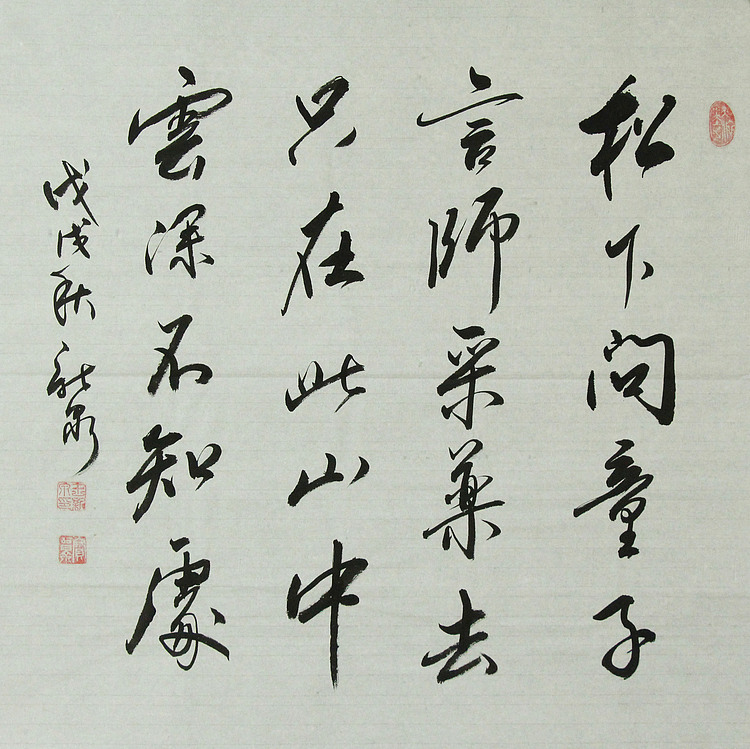 松下问童子
言師采药去
只在此山中
雲深不知處
戊戌秋新泉